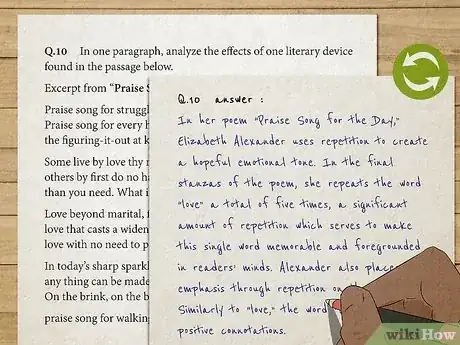 Q.10 In one paragraph, analyze the effects of one literary device
found in the passage below.
Excerpt from "Praise S
Praise song for struggl
Praise song for every h
the figuring-it-out at k
Some live by love thy n
others by first do no ha
than you need. What i
Love beyond marital, f
love that casts a widen
love with no need to p
In today's sharp sparkl
any thing can be made
On the brink, on the b
praise song for walkin
Q.10 answer :
In her poem "Praise Song for the Day,"
Elizabeth Alexander uses repetition to create
a hopeful emotional tone. In the final
stanzas of the poem, she repeats the word
"love" a total of five times, a significant
amount of repetition which serves to make
this single word memorable and foregrounded
in readers' minds. Alexander also place
emphasis through repetition on
Similarly to "love," the word
positive connotations.
wikiHow